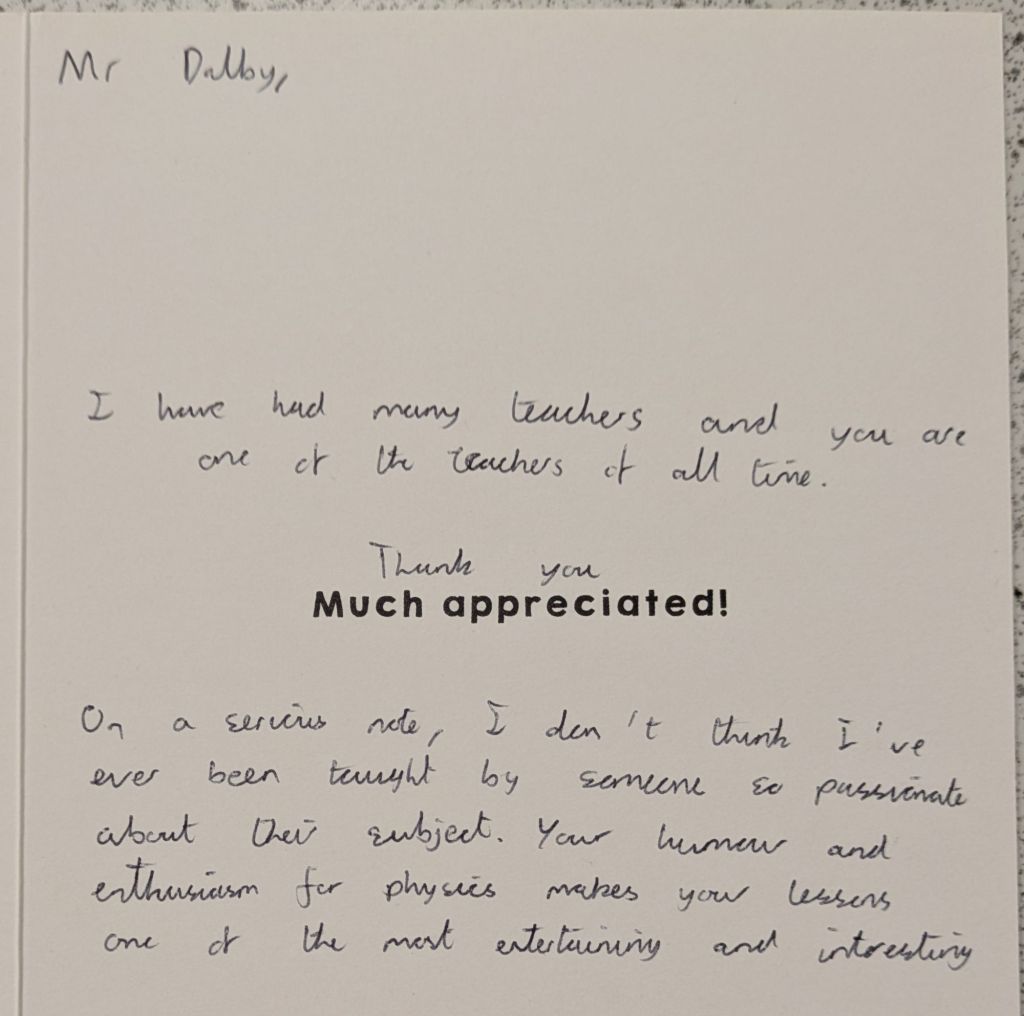 Mr Dalby,
I have had many teachers and you are
one of the teachers of all time.
Thank you
Much appreciated!
On a serious note, I don't think I've
ever been taught by someone so passionate
about their subject. Your humour and
enthusiasm for physics makes your lessons
one of the most entertaining and interesting